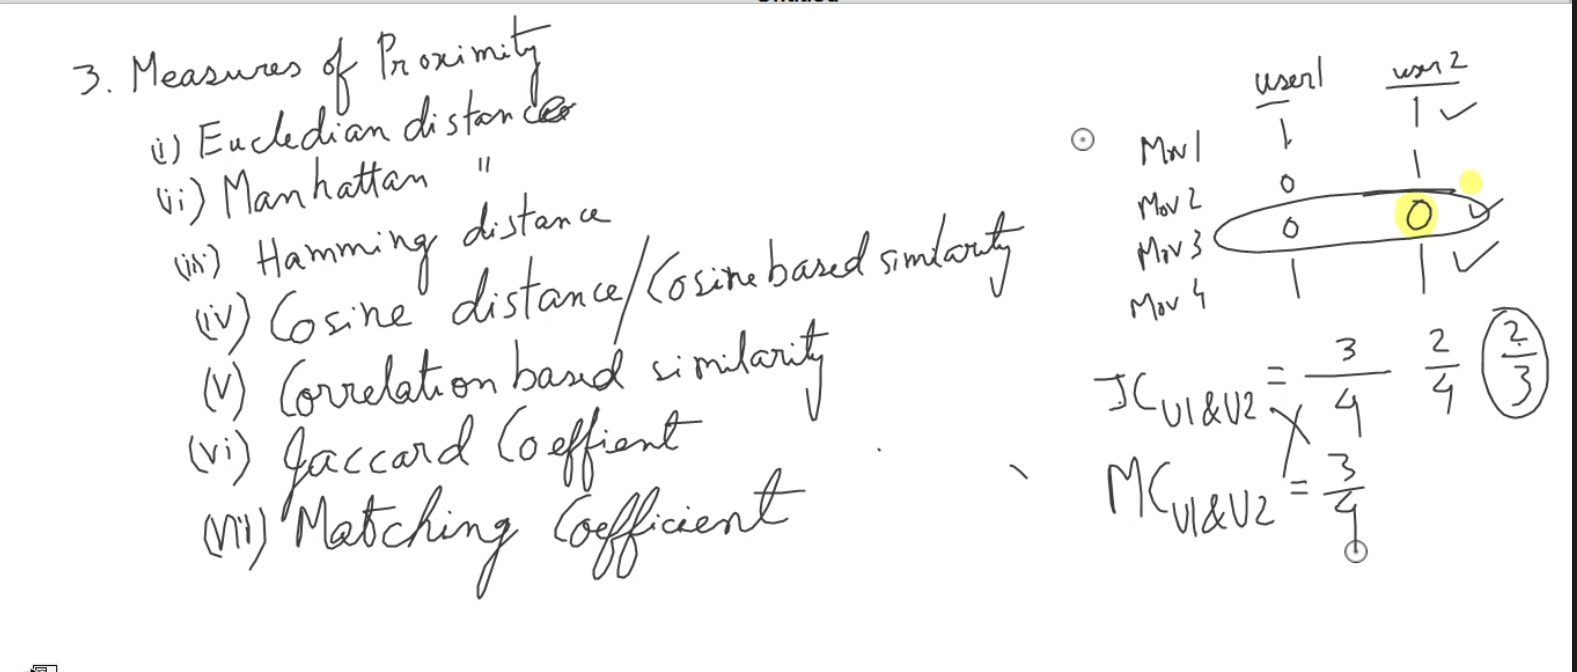 3. Measures of Proximity
(i) Eucledian distance
(ii) Manhattan "
(iii) Hamming distance
(iv) Cosine distance/Cosine based similarity
(v) Correlation based similarity
(vi) Jaccard Coeffient
(vii) Matching Coefficient
user1 user2
Mov1 1 1 ✓
Mov2 0 1
Mov3 0 0 ✓
Mov4 1 1 ✓
JC U1&U2 = 3/4 2/4 2/3
MC U1&U2 = 3/4